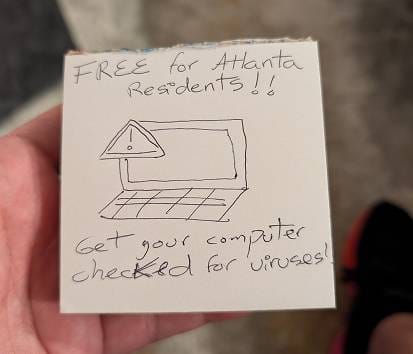 FREE for Atlanta
Residents!!
!
Get your computer
checked for viruses!